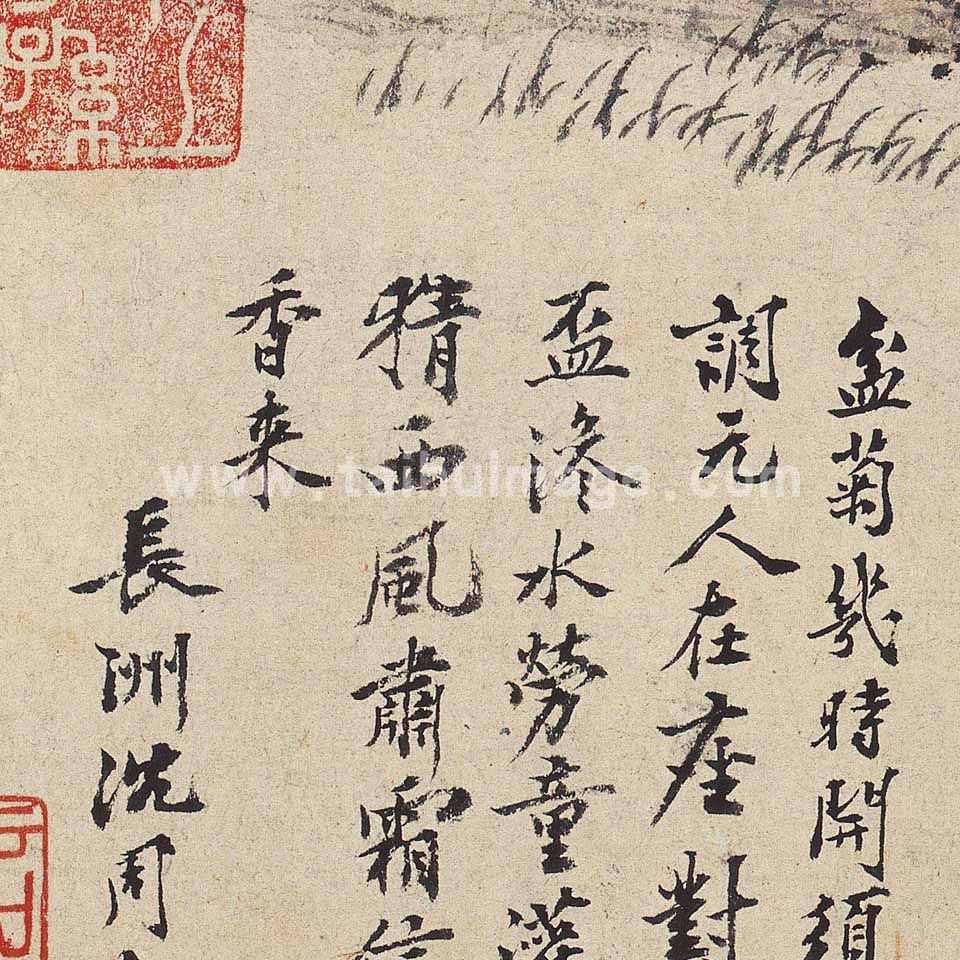 盆菊幾時開須
調元人在座對
盃滲水勞童灌
猜西風肅霜信
香來
長洲沈周
www.taihuimage.com